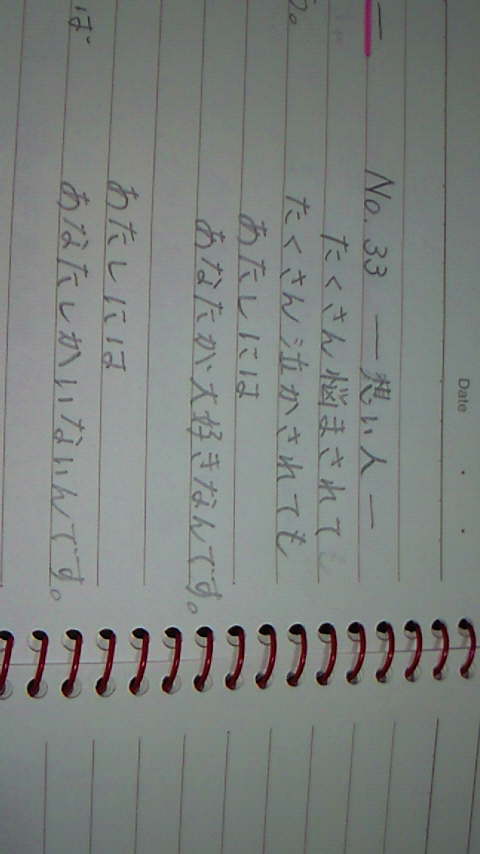 Date
No.33 ―想い人―
たくさん悩まされて
たくさん泣かされても
あたしには
あなたが大好きなんです。
あたしには
あなたしかいないんです。